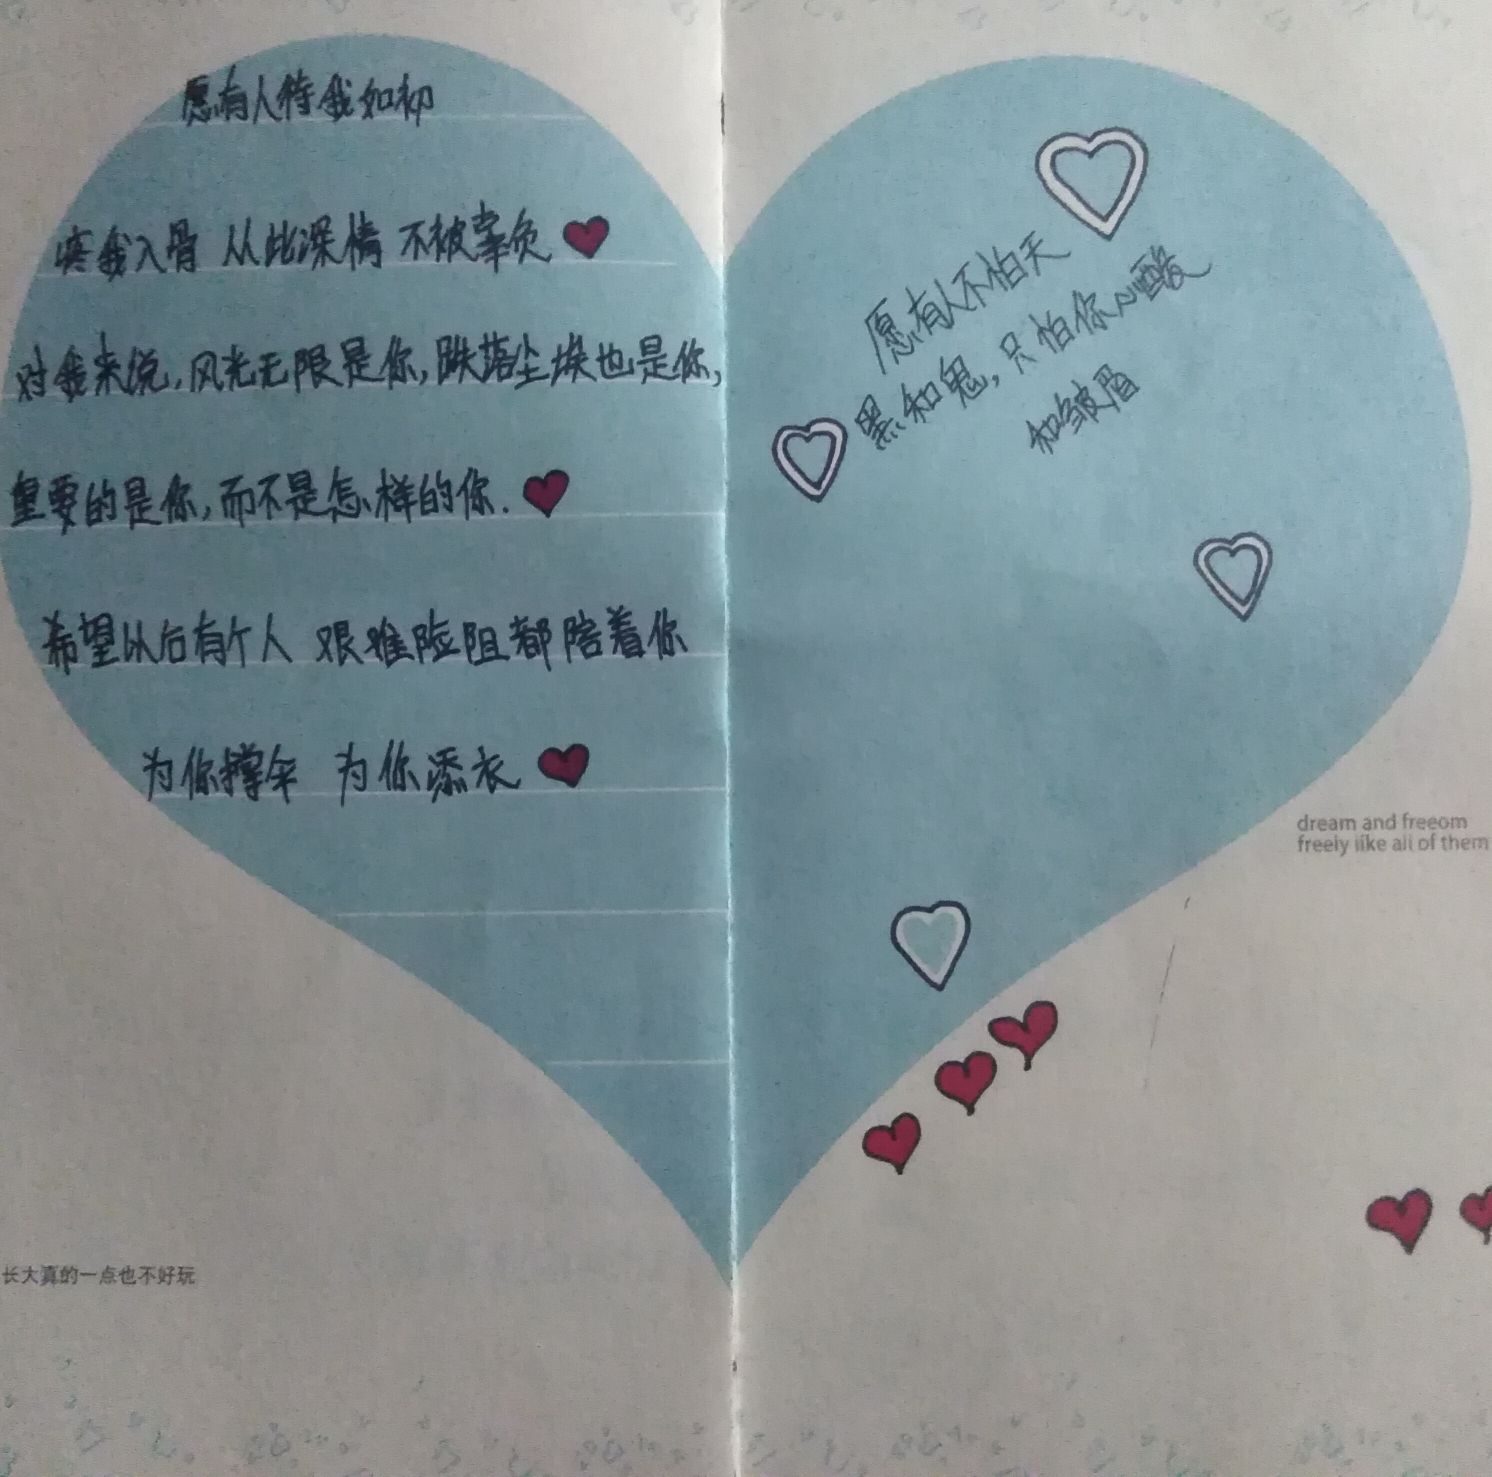 愿有人待我如初
疼我入骨 从此深情 不被辜负
对我来说,风光无限是你,跌落尘埃也是你,
重要的是你,而不是怎样的你.
希望以后有个人 艰难险阻都陪着你
为你撑伞 为你添衣
长大真的一点也不好玩
愿有人不怕天
黑和鬼,只怕你心酸
和皱眉
dream and freeom
freely iike all of them